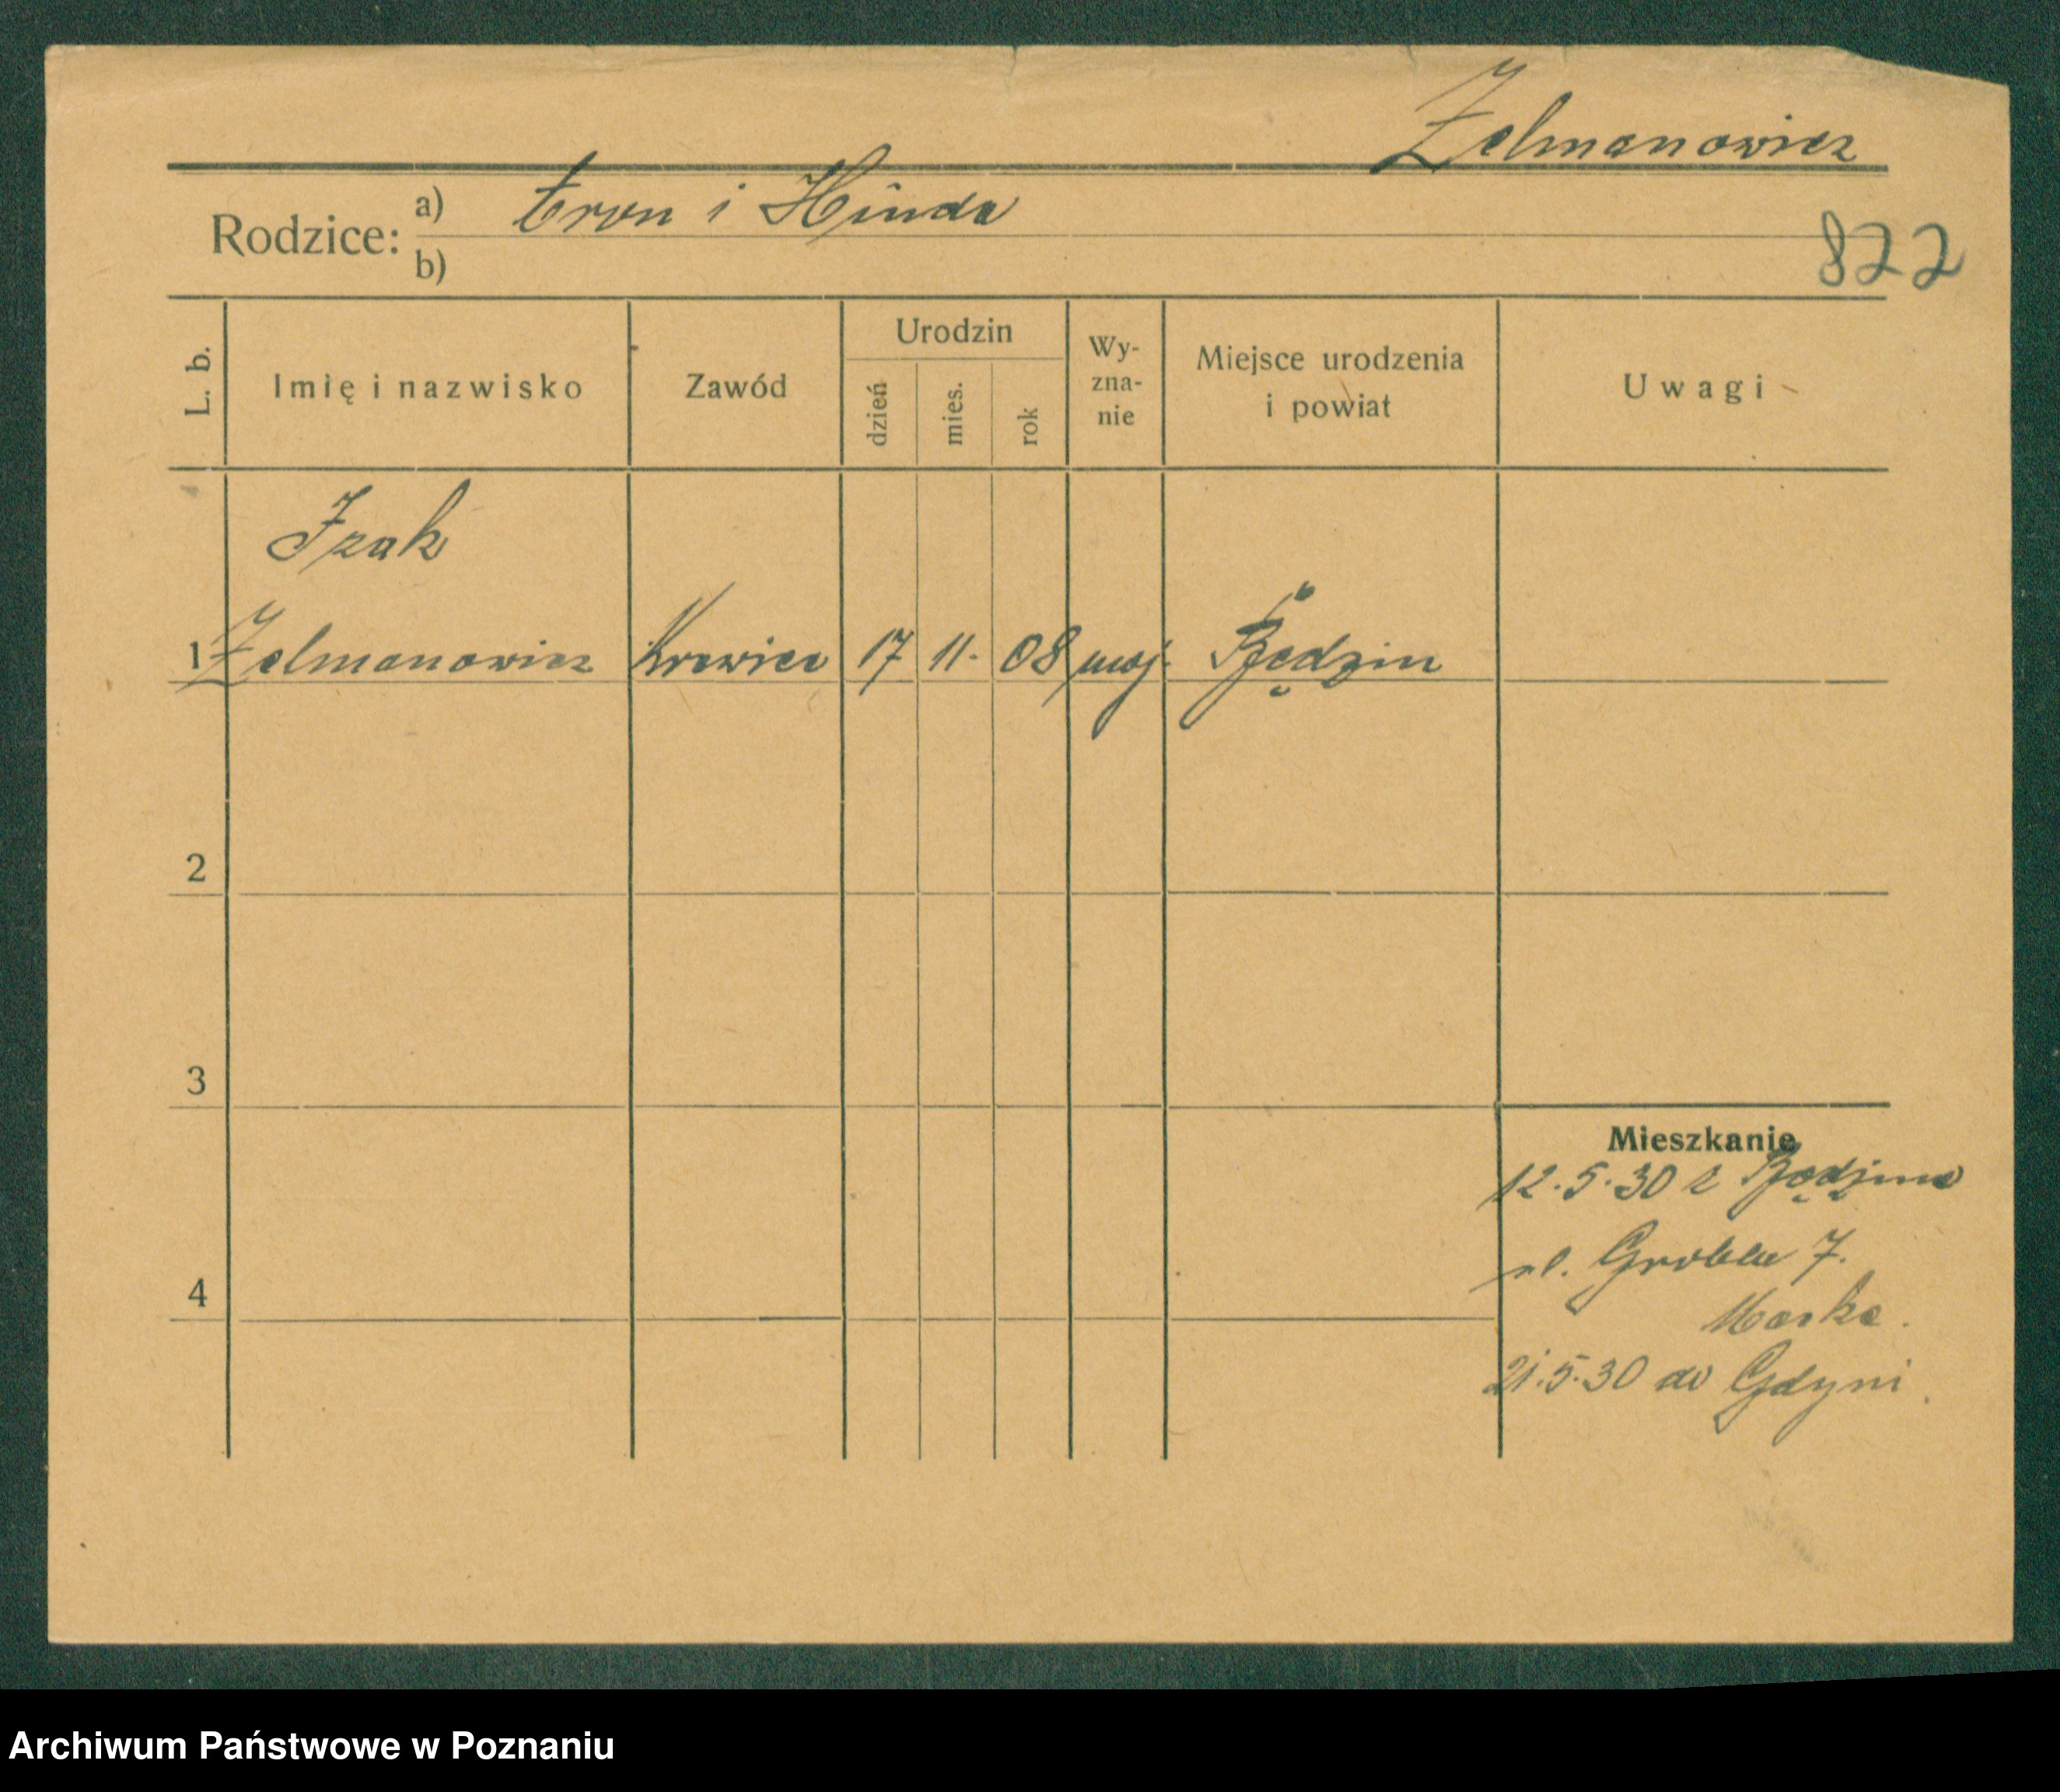 Zelmanowicz
Rodzice: a) Eron i Hinda
b)
822
L. b.
Imię i nazwisko
Zawód
Urodzin
dzień
mies.
rok
Wy-
zna-
nie
Miejsce urodzenia
i powiat
Uwagi
Izak
1 Zelmanowicz Krawiec 17 11. 08 moj. Będzin
2
3
Mieszkanie
12.5.30 z Będzina
ul. Grobla 7.
4
21.5.30 do Gdyni.
Archiwum Państwowe w Poznaniu